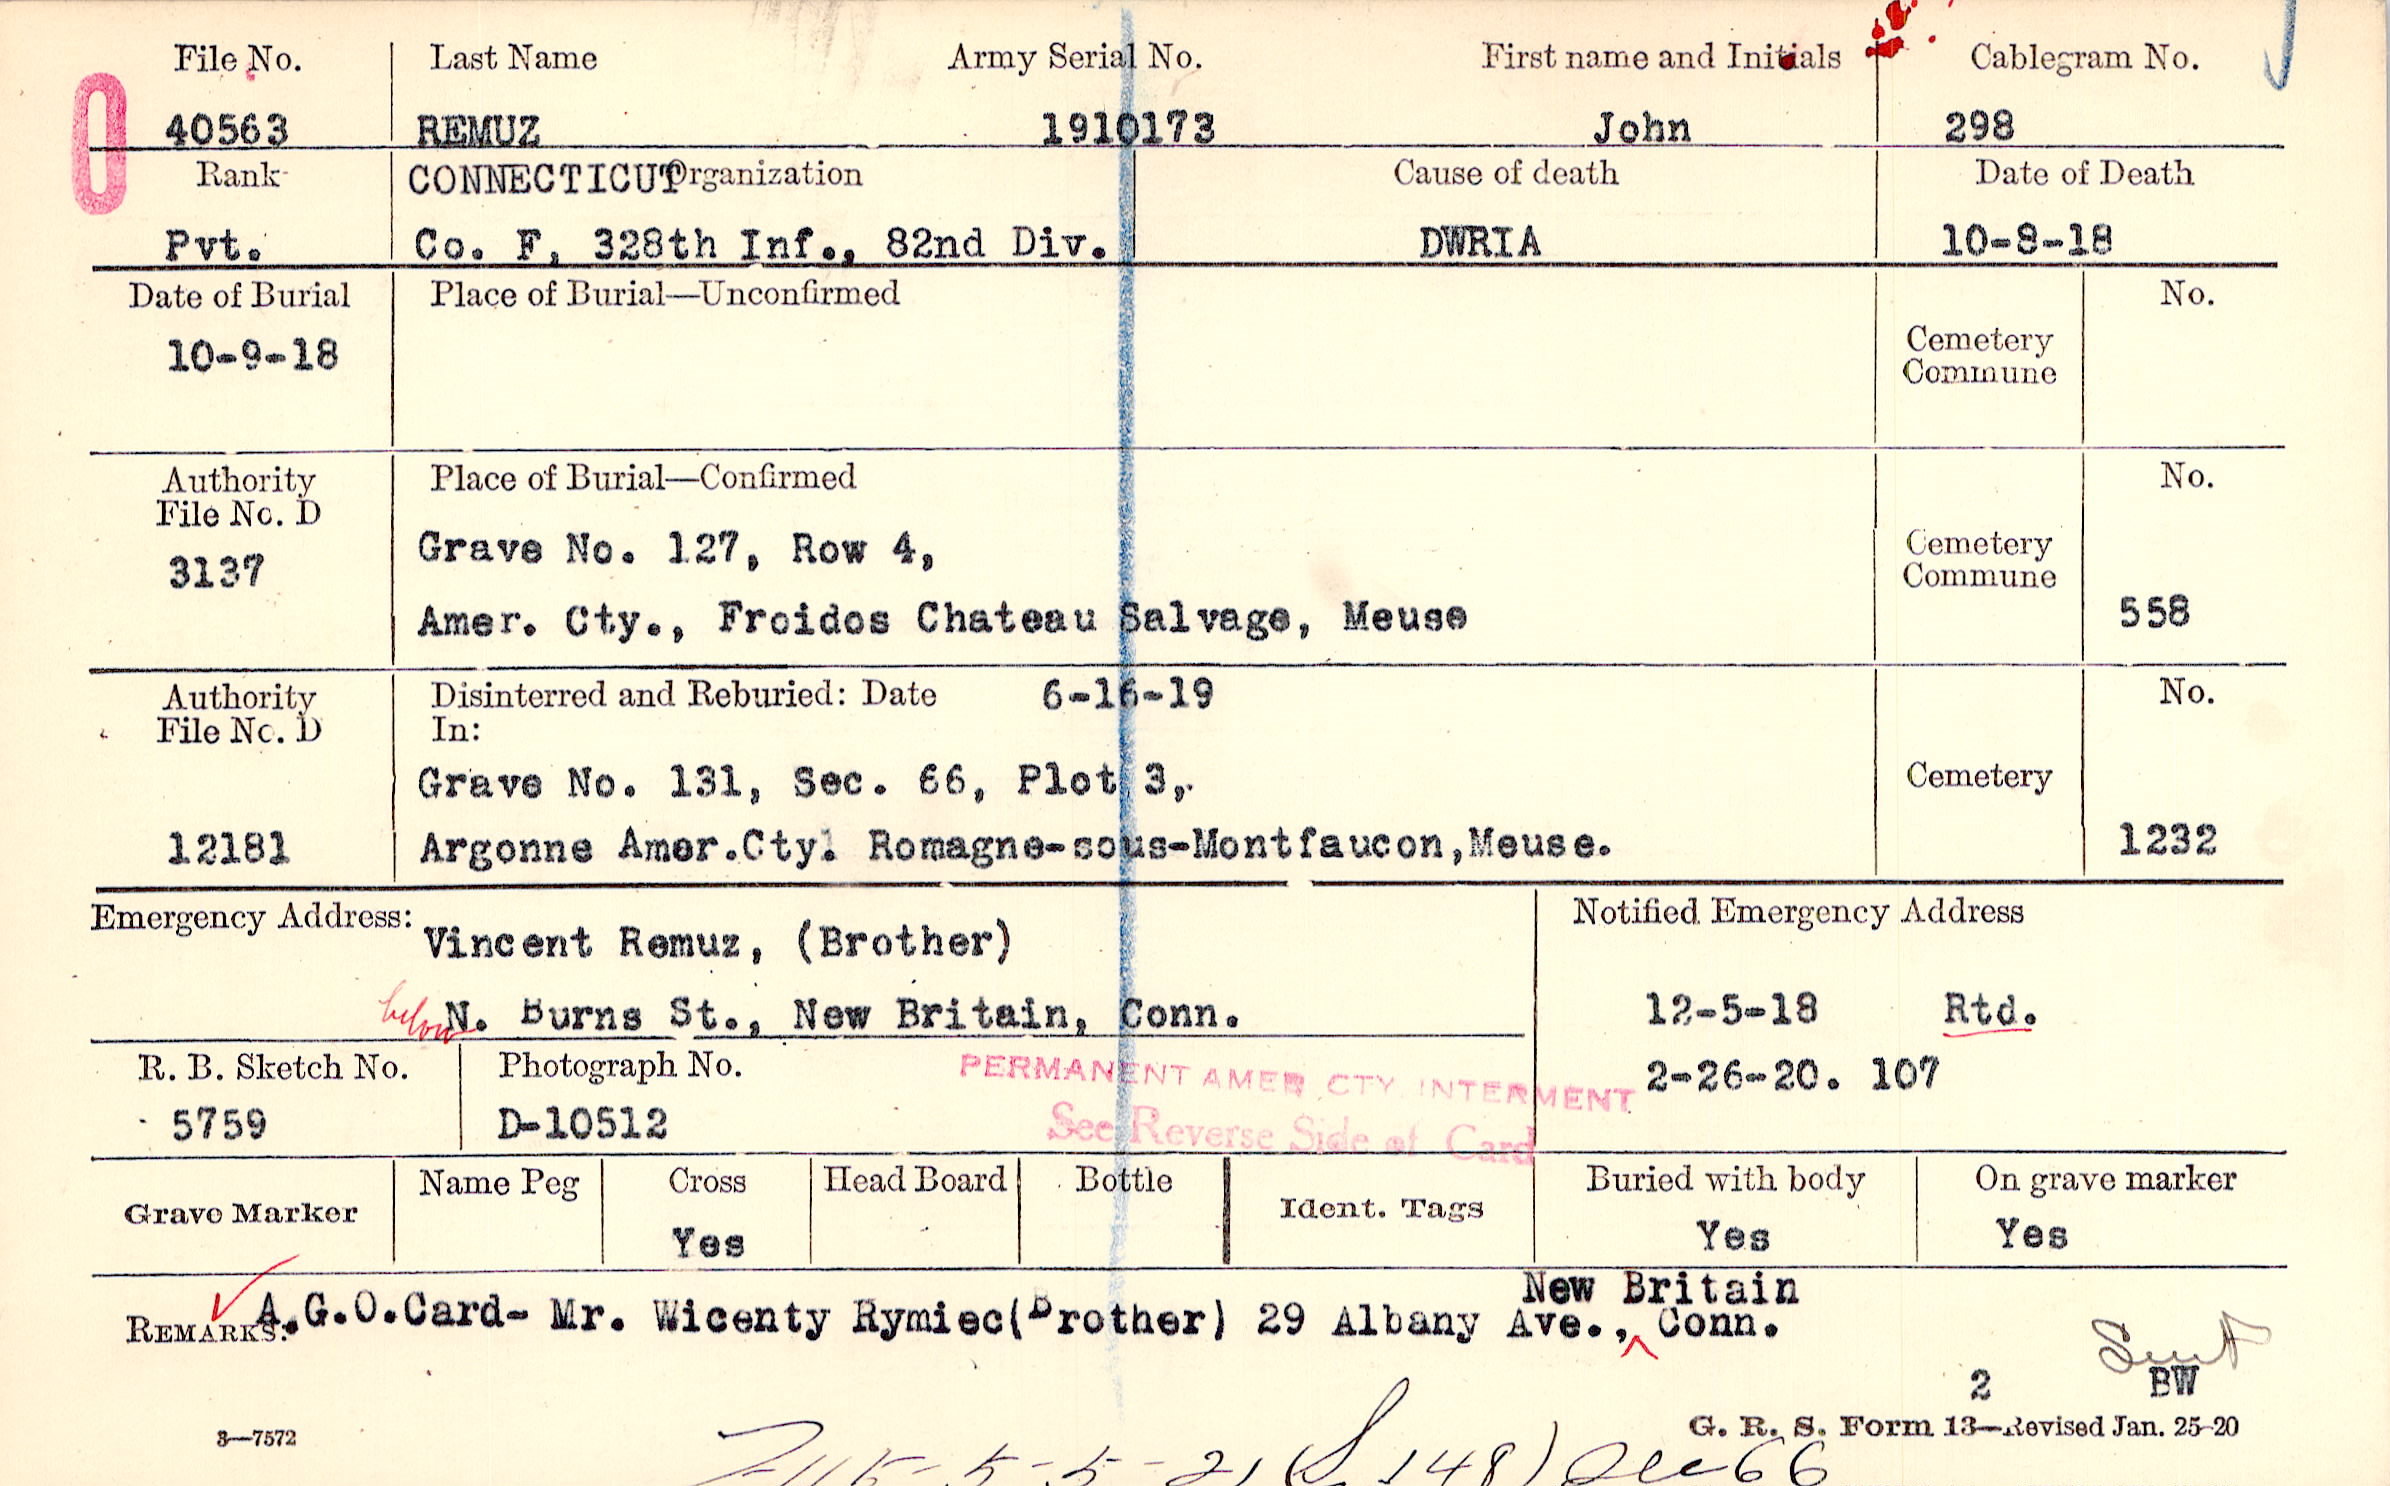 File No. Last Name Army Serial No. First name and Initials Cablegram No.
40563 REMUZ 1910173 John 298
Rank CONNECTICUT Organization Cause of death Date of Death
Pvt. Co. F, 328th Inf., 82nd Div. DWRIA 10-8-18
Date of Burial Place of Burial—Unconfirmed No.
10-9-18 Cemetery
Commune
Authority Place of Burial—Confirmed No.
File No. D
3137 Grave No. 127, Row 4, Cemetery
Commune
Amer. Cty., Froidos Chateau Salvage, Meuse 558
Authority Disinterred and Reburied: Date 6-16-19 No.
File No. D In:
Grave No. 131, Sec. 66, Plot 3, Cemetery
12181 Argonne Amer.Cty. Romagne-sous-Montfaucon,Meuse. 1232
Emergency Address: Vincent Remuz, (Brother) Notified Emergency Address
below N. Burns St., New Britain, Conn. 12-5-18 Rtd.
R. B. Sketch No. Photograph No. PERMANENT AMER. CTY. INTERMENT 2-26-20. 107
5759 D-10512 See Reverse Side of Card
Grave Marker Name Peg Cross Head Board Bottle Ident. Tags Buried with body On grave marker
Yes Yes Yes
New Britain
REMARKS: A.G.O.Card- Mr. Wicenty Rymiec(Brother) 29 Albany Ave., Conn.
Sent
2 BW
3—7572 G. R. S. Form 13—Revised Jan. 25-20
148) Sec 66